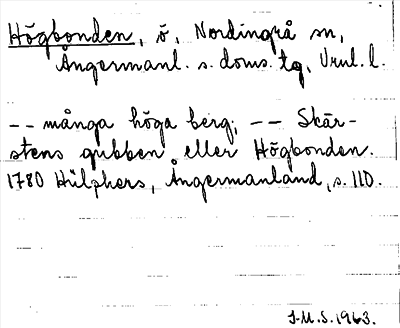 Högbonden, ö, Nordingrå sn,
Ångermanl. s. doms. tg, Vrnl. l.
-- många höga berg; -- Skär-
stens gubben eller Högbonden.
1780 Hülphers, Ångermanland, s. 110.
I.M.S. 1963.